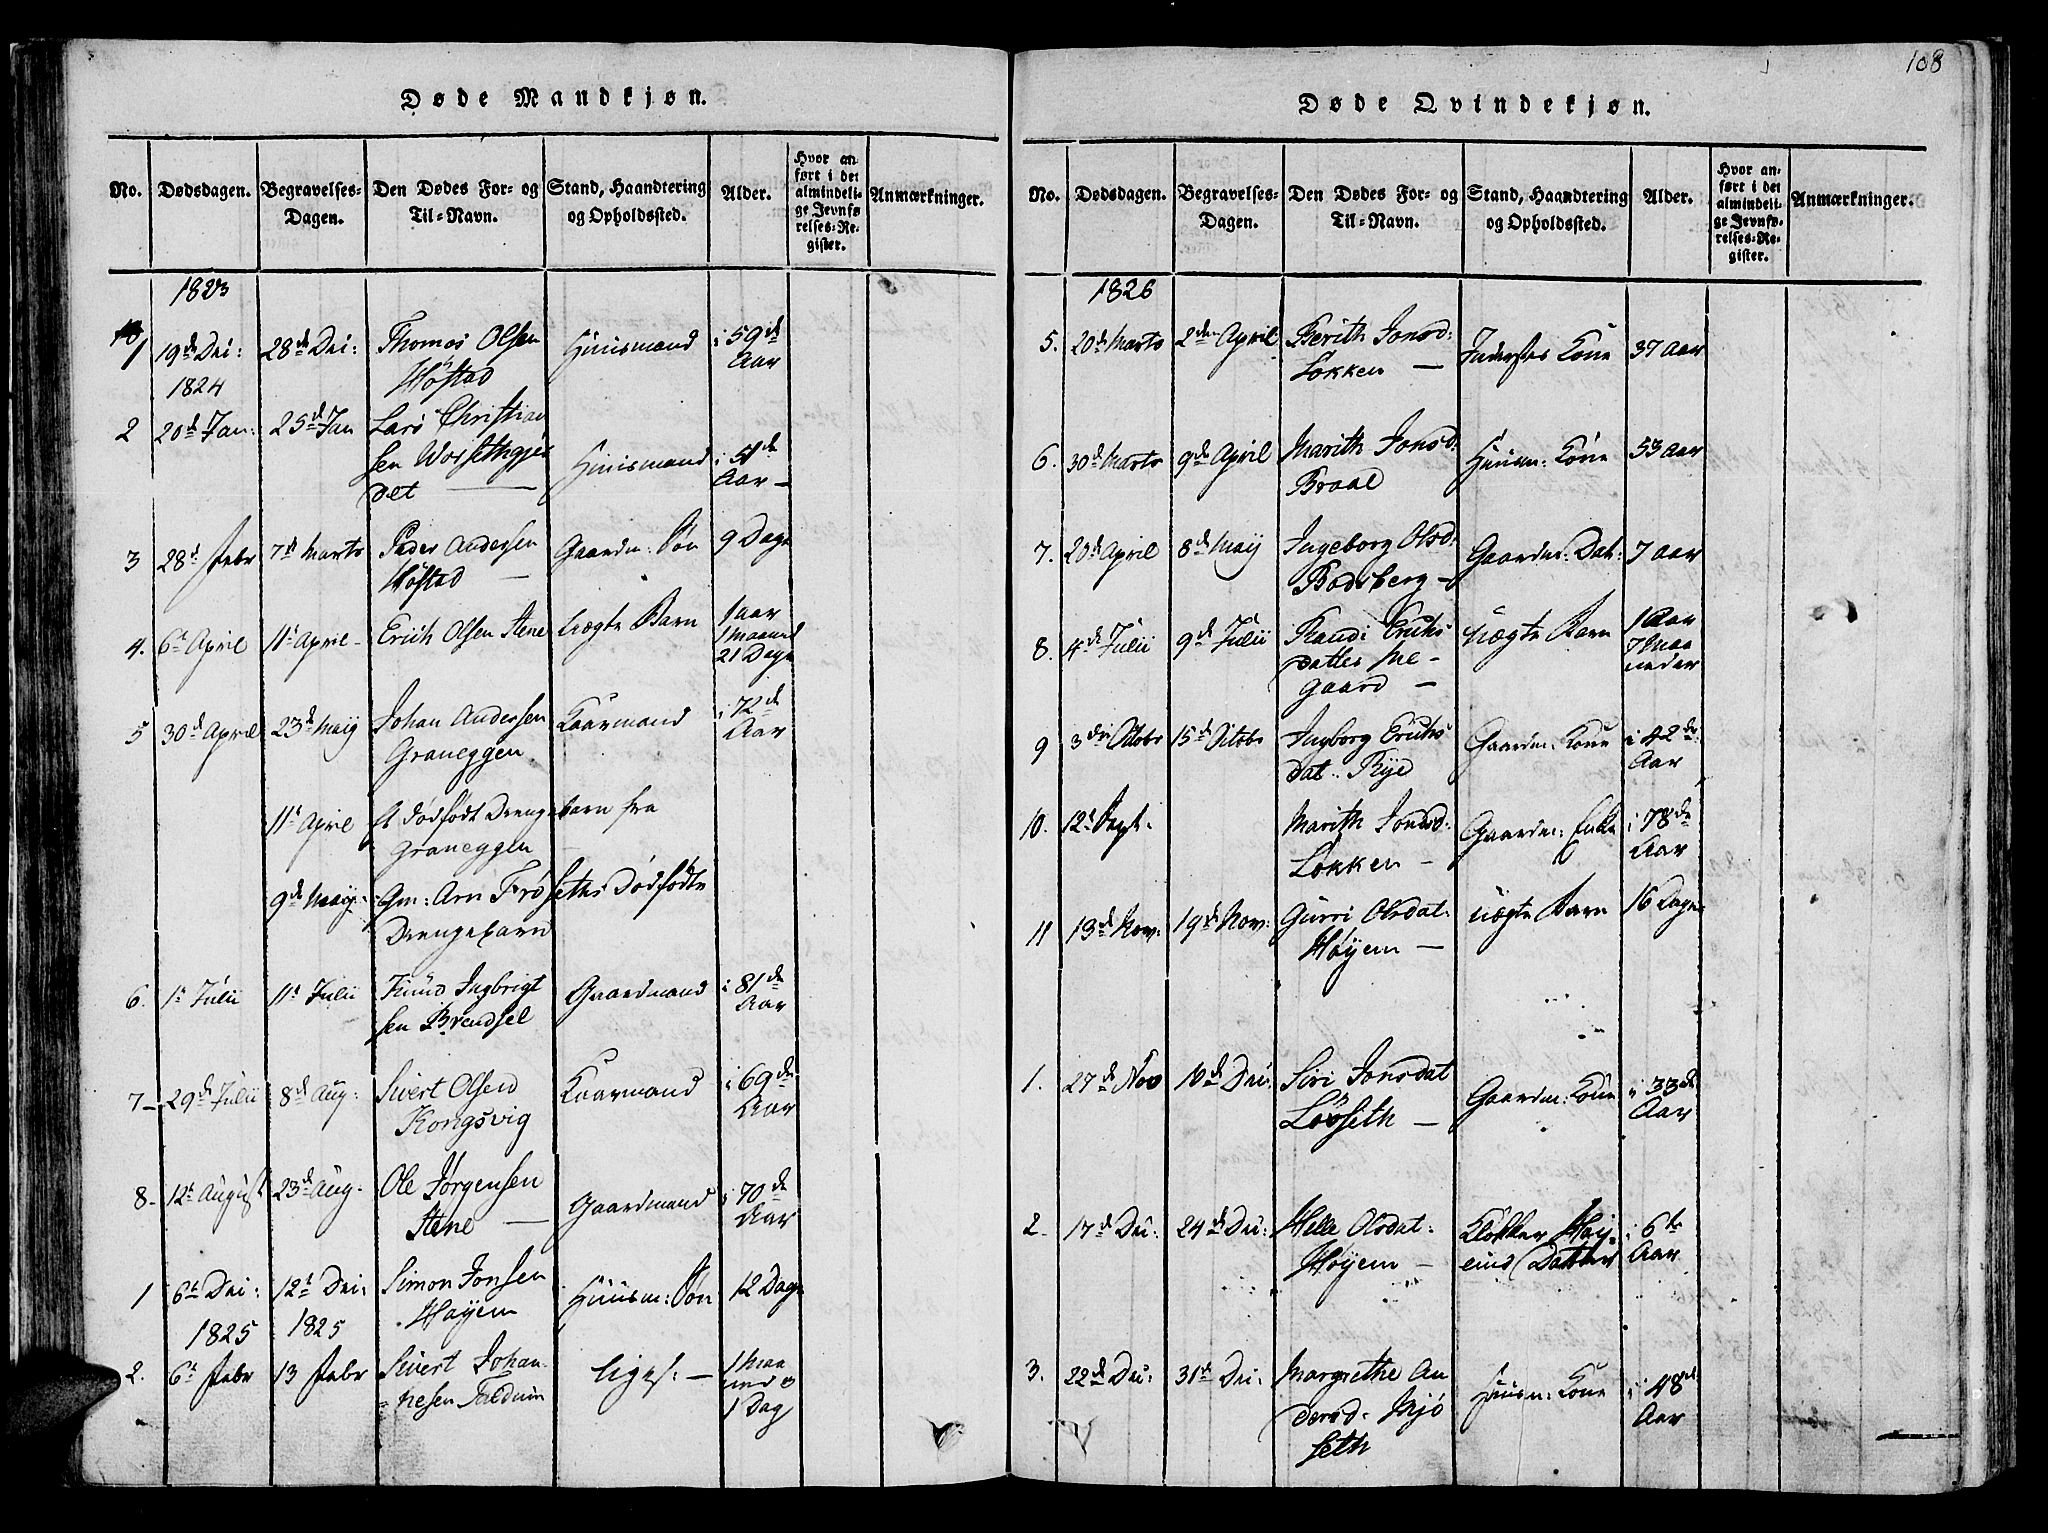 108
Døde Mandkjøn.
No. Dødsdagen. Begravelses-Dagen. Den Dødes For- og Til-Navn. Stand, Haandtering og Opholdssted. Alder. Hvor anført i det almindelige Jevnførelses-Register. Anmærkninger.
1823
1 19de Dei: 28de Dei: Thomas Olsen Huusmand i 59de
Høstad Aar
1824
2 20de Jan: 25de Jan Lars Christian
sen Huusmand i 51de
det — Aar —
3 28de Febr 7de Marts Peder Andersen Gaardm: Søn 9 Dage
Høstad —
4. 6te April 11te April Erich Olsen Stene uægte Barn 1 aar
1 Maaned
21 Dage
5 30de April 23de Maij Johan Andersen Kaarmand i 72de
Graneggen Aar
11te April et dødfødt Drengebarn fra
Graneggen —
9de Maij Gm: Arn Frøseths Dødfødte
Drengebarn
6. 1te Julii 11te Julii Knud Ingbrigt Gaardmand i 81de
sen Brendsel Aar
7 29de Julii 8de Aug: Sivert Olsen Kaarmand i 69de
Kongsvig Aar
8 12te August 23de Aug. Ole Jørgensen Gaardmand i 70de
Stene — Aar
1 6te Dei: 12te Dei: Simon Jonsen Huusm: Søn 12 Dage
1825 1825 Høyem
2. 6te Febr 13 Febr Sivert Johan liges. — 1 Maa
nesen ned o
1 Dag
Døde Qvindekjøn.
No. Dødsdagen. Begravelses-Dagen. Den Dødes For- og Til-Navn. Stand, Haandtering og Opholdssted. Alder. Hvor anført i det almindelige Jevnførelses-Register. Anmærkninger.
1826
5. 20de Marts 2den April Berith Jonsd: Inderstes Kone 37 Aar
Løkken —
6. 30de Marts 9de April Marith Jonsd: Huusm: Kone 53 Aar
Braal
7. 20de April 8de Maij Ingeborg Olsd: Gaardm: Dat: 7 aar
Bodsberg —
8. 4de Julii 9de Julii Randi Erichs uægte Barn 1 Aar
datter 7 Maa
gaard — neder
9 3die Octobr 15de Octobr Ingborg Erichs Gaardm: Kone i 42de
dat. Rye Aar
10. 12te Sept. Marith Jonsd: Gaardm: Enke i 78de
Løkken — Aar
11 13de Nov: 19de Nov: Gurri Olsdat: uægte Barn 16 Dage
Høyem —
1. 27de Nov 10de Dei: Siri Jonsdat Gaardm: Kone i 33de
Løvseth — Aar
2. 17de Dei: 24de Dei: Helle Olsdat: Klokker Høy- i 6te
Høyem — ems Datter Aar
3. 22de Dei: 31te Dei: Margrethe An Huusm: Kone i 48de
dersd: Mjø Aar
seth